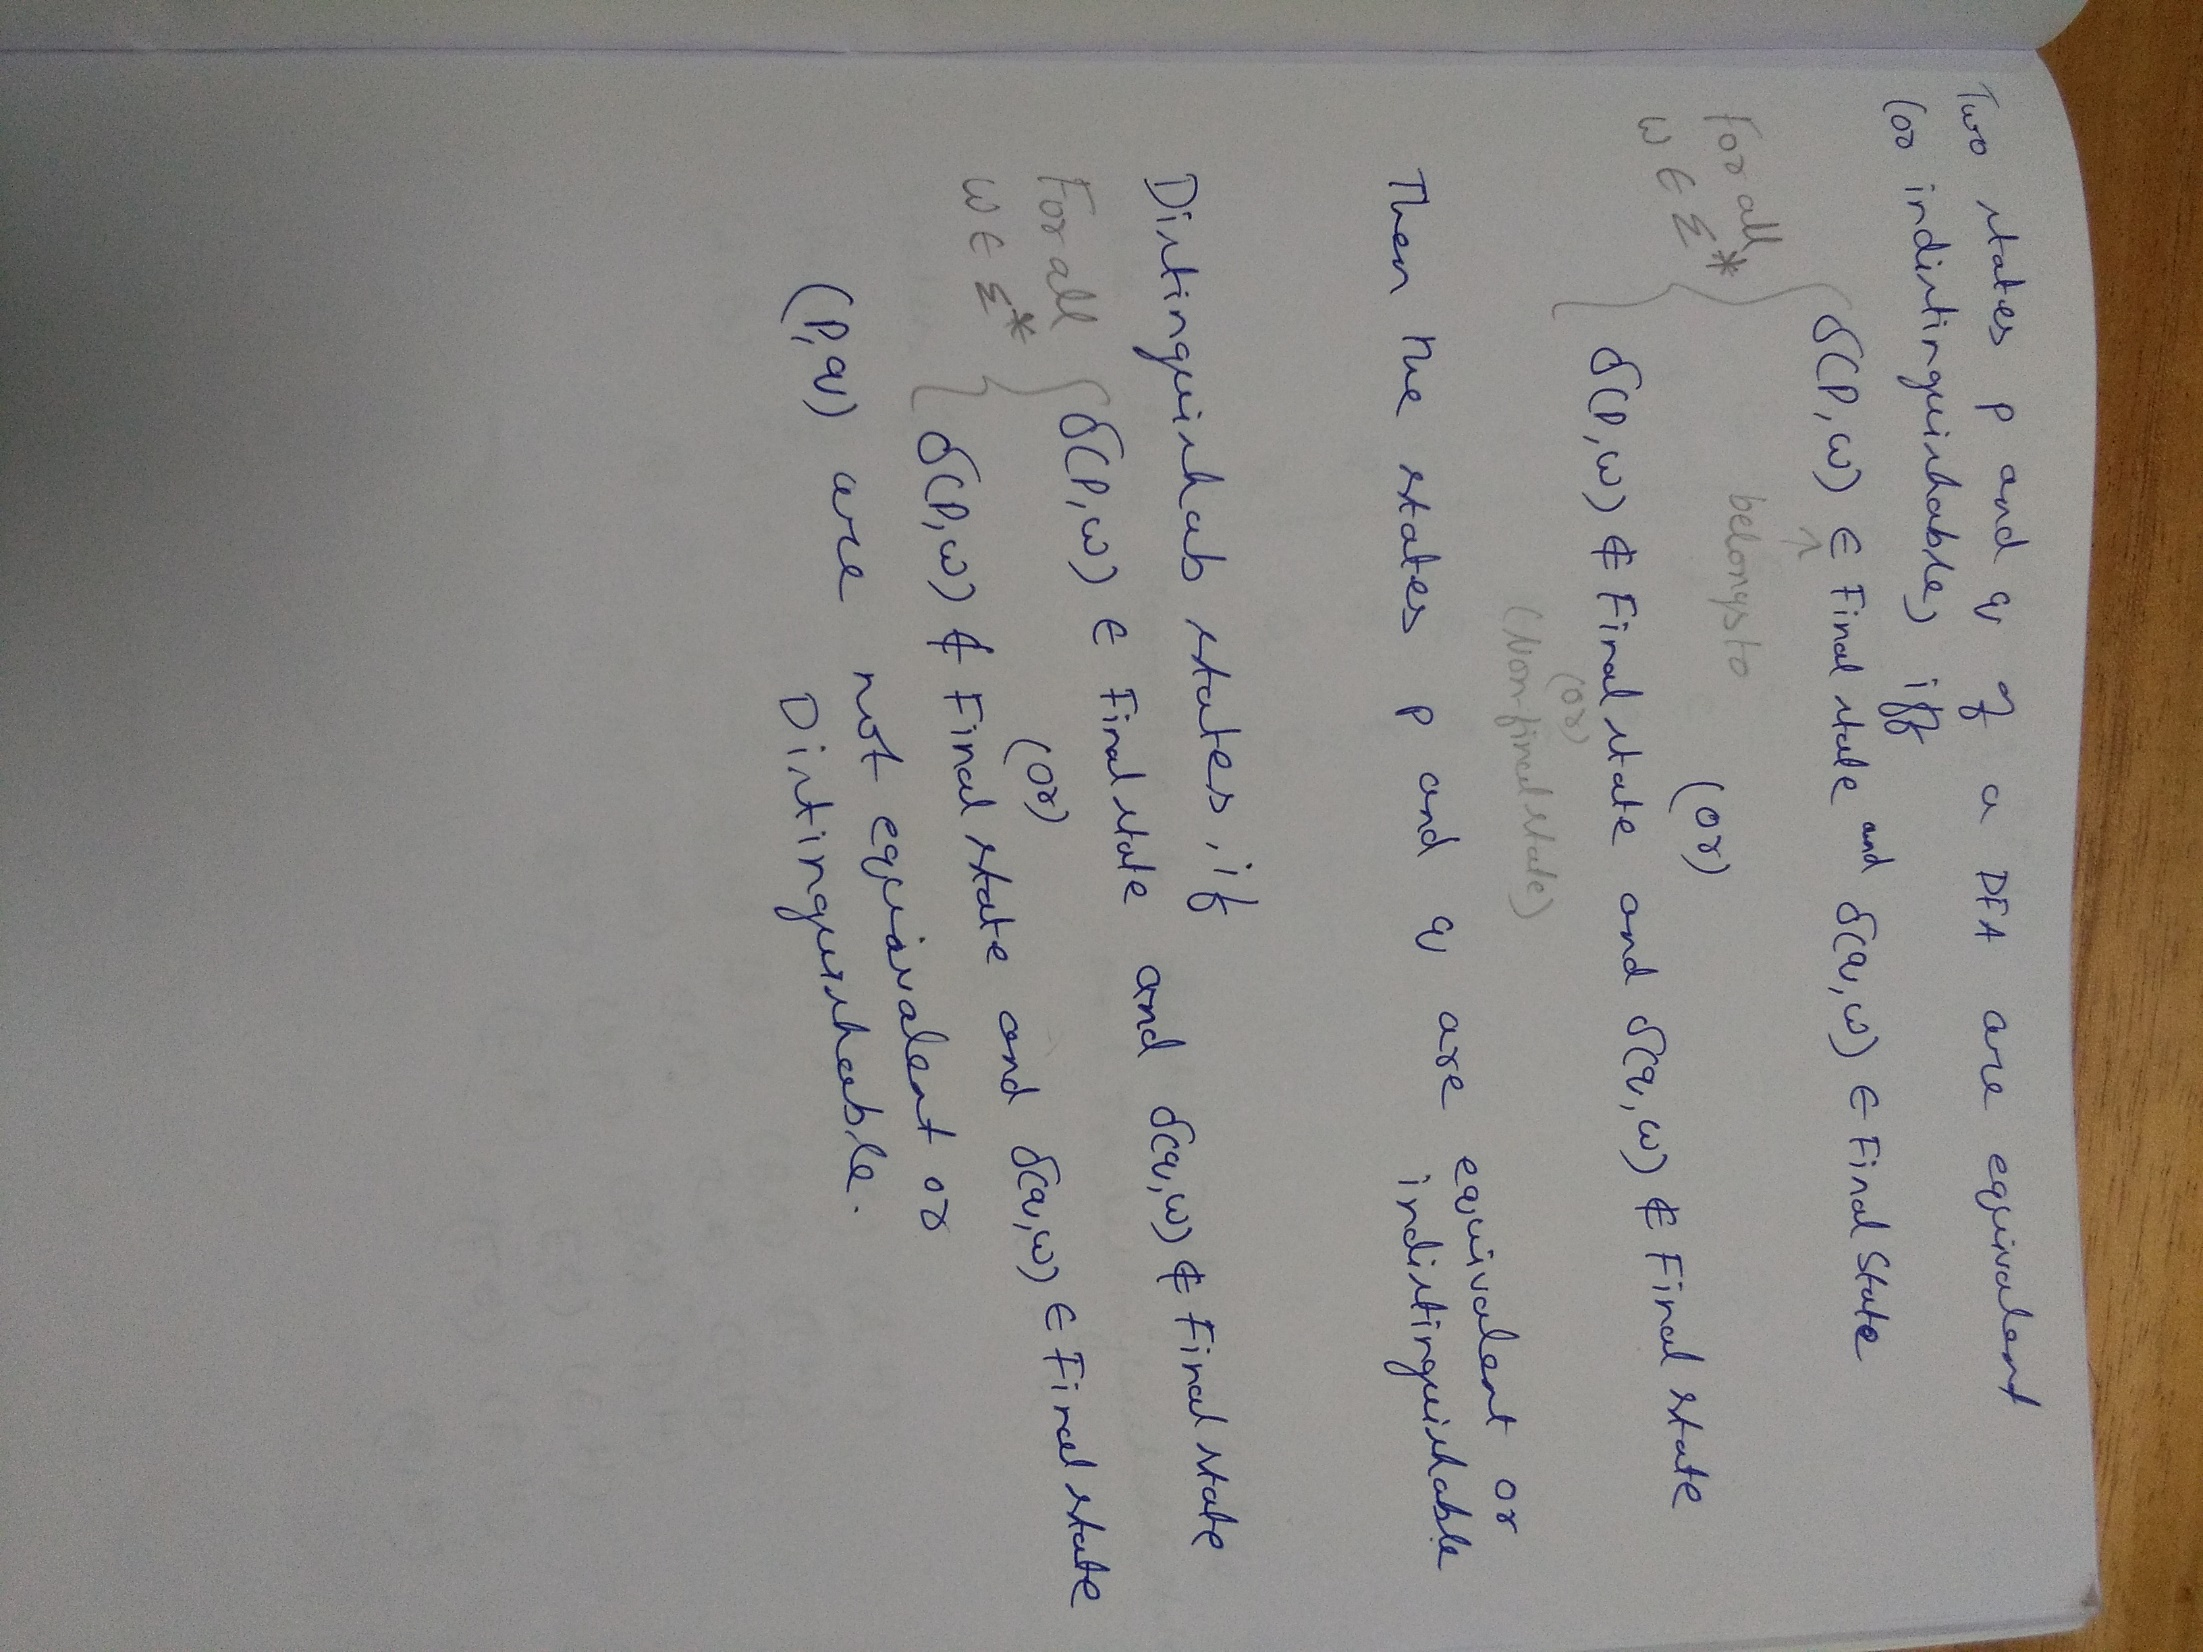 Two states p and q of a DFA are equivalent
(or indistinguishable) iff
For all
w ∈ Σ*
δ(p,w) ∈ Final state and δ(q,w) ∈ Final State
belongs to
(or)
δ(p,w) ∉ Final state and δ(q,w) ∉ Final state
(or)
(Non-final state)
Then the states p and q are equivalent or
indistinguishable
Distinguishab states, if
For all
w ∈ Σ*
δ(p,w) ∈ Final state and δ(q,w) ∉ Final state
(or)
δ(p,w) ∉ Final state and δ(q,w) ∈ Final state
(p,q) are not equivalent or
Distinguishable.